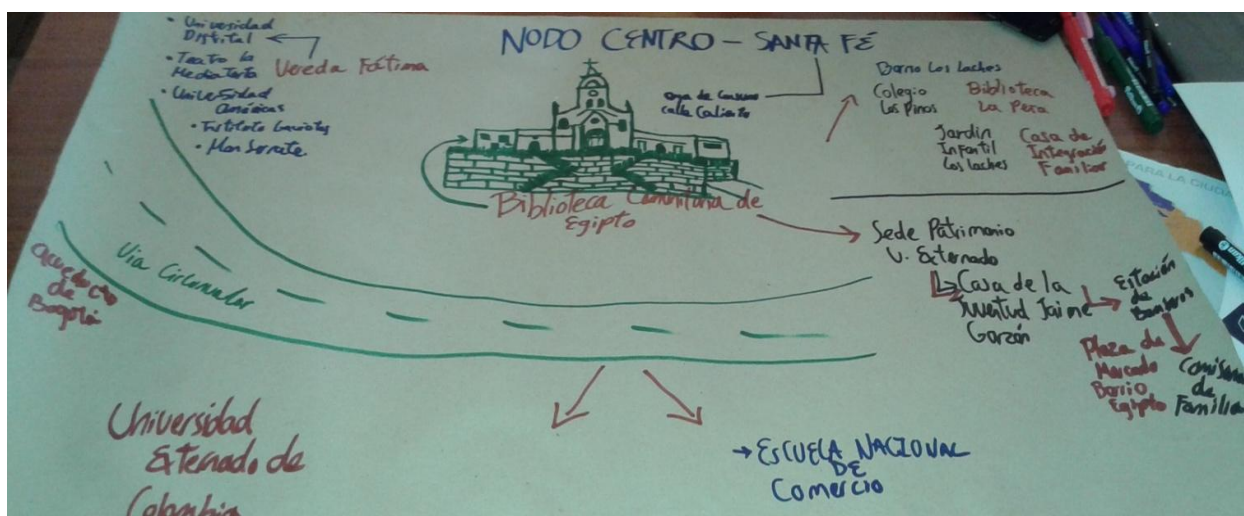 NODO CENTRO - SANTA FÉ
• Universidad
Distital
• Teatro la
Media Torta
Vereda Fátima
• Universidad
• Instituto
• Monserrate
calle Caliente
Barrio Los Laches
Colegio
Los Pinos
Biblioteca
La Peña
Jardin
Infantil
Los Laches
Casa de
Integración
Familiar
Biblioteca Comunitaria de
Egipto
Sede Patrimonio
U. Externado
Casa de la
Juventud Jaime
Garzón
Estación
de
Bomberos
Plaza de
Mercado
Barrio
Egipto
Comisaria
de
Familia
Via Circunvalar
Acueducto
de
Bogotá
Universidad
Externado de
Colombia
→ ESCUELA NACIONAL
DE
Comercio
PARA LA CIUDA